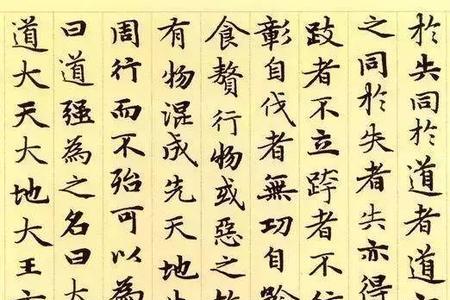 於失同於道者道
之同於失者失亦得
跂者不立跨者不行
彰自伐者無功自矜
食贅行物或惡之故
有物混成先天地生
周行而不殆可以為
曰道強為之名曰大
道大天大地大王亦